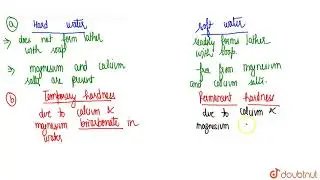 (a) Hard water
→ does not form lather
with soap.
→ magnesium and calcium
salts are present
Soft water
readily forms lather
with soap.
free from magnesium
and calcium salts.
(b) Temporary hardness
due to calcium &
magnesium bicarbonate in
water
Permanent hardness
due to calcium &
magnesium
doubtnut